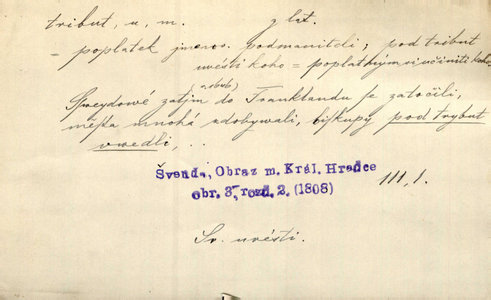 tribut, u, m. z lat.
= poplatek jmenov. podmaniteli; pod tribut
uvésti koho = poplatným si učiniti koho
Sweydowé zatjm do Franklandu se zatočili,
města mnohá zdobywali, biskupy pod trybut
uwedli, ..
Švenda, Obraz m. Král. Hradce
obr. 3, rozd. 2. (1808) III, 1.
Sr. uvésti.